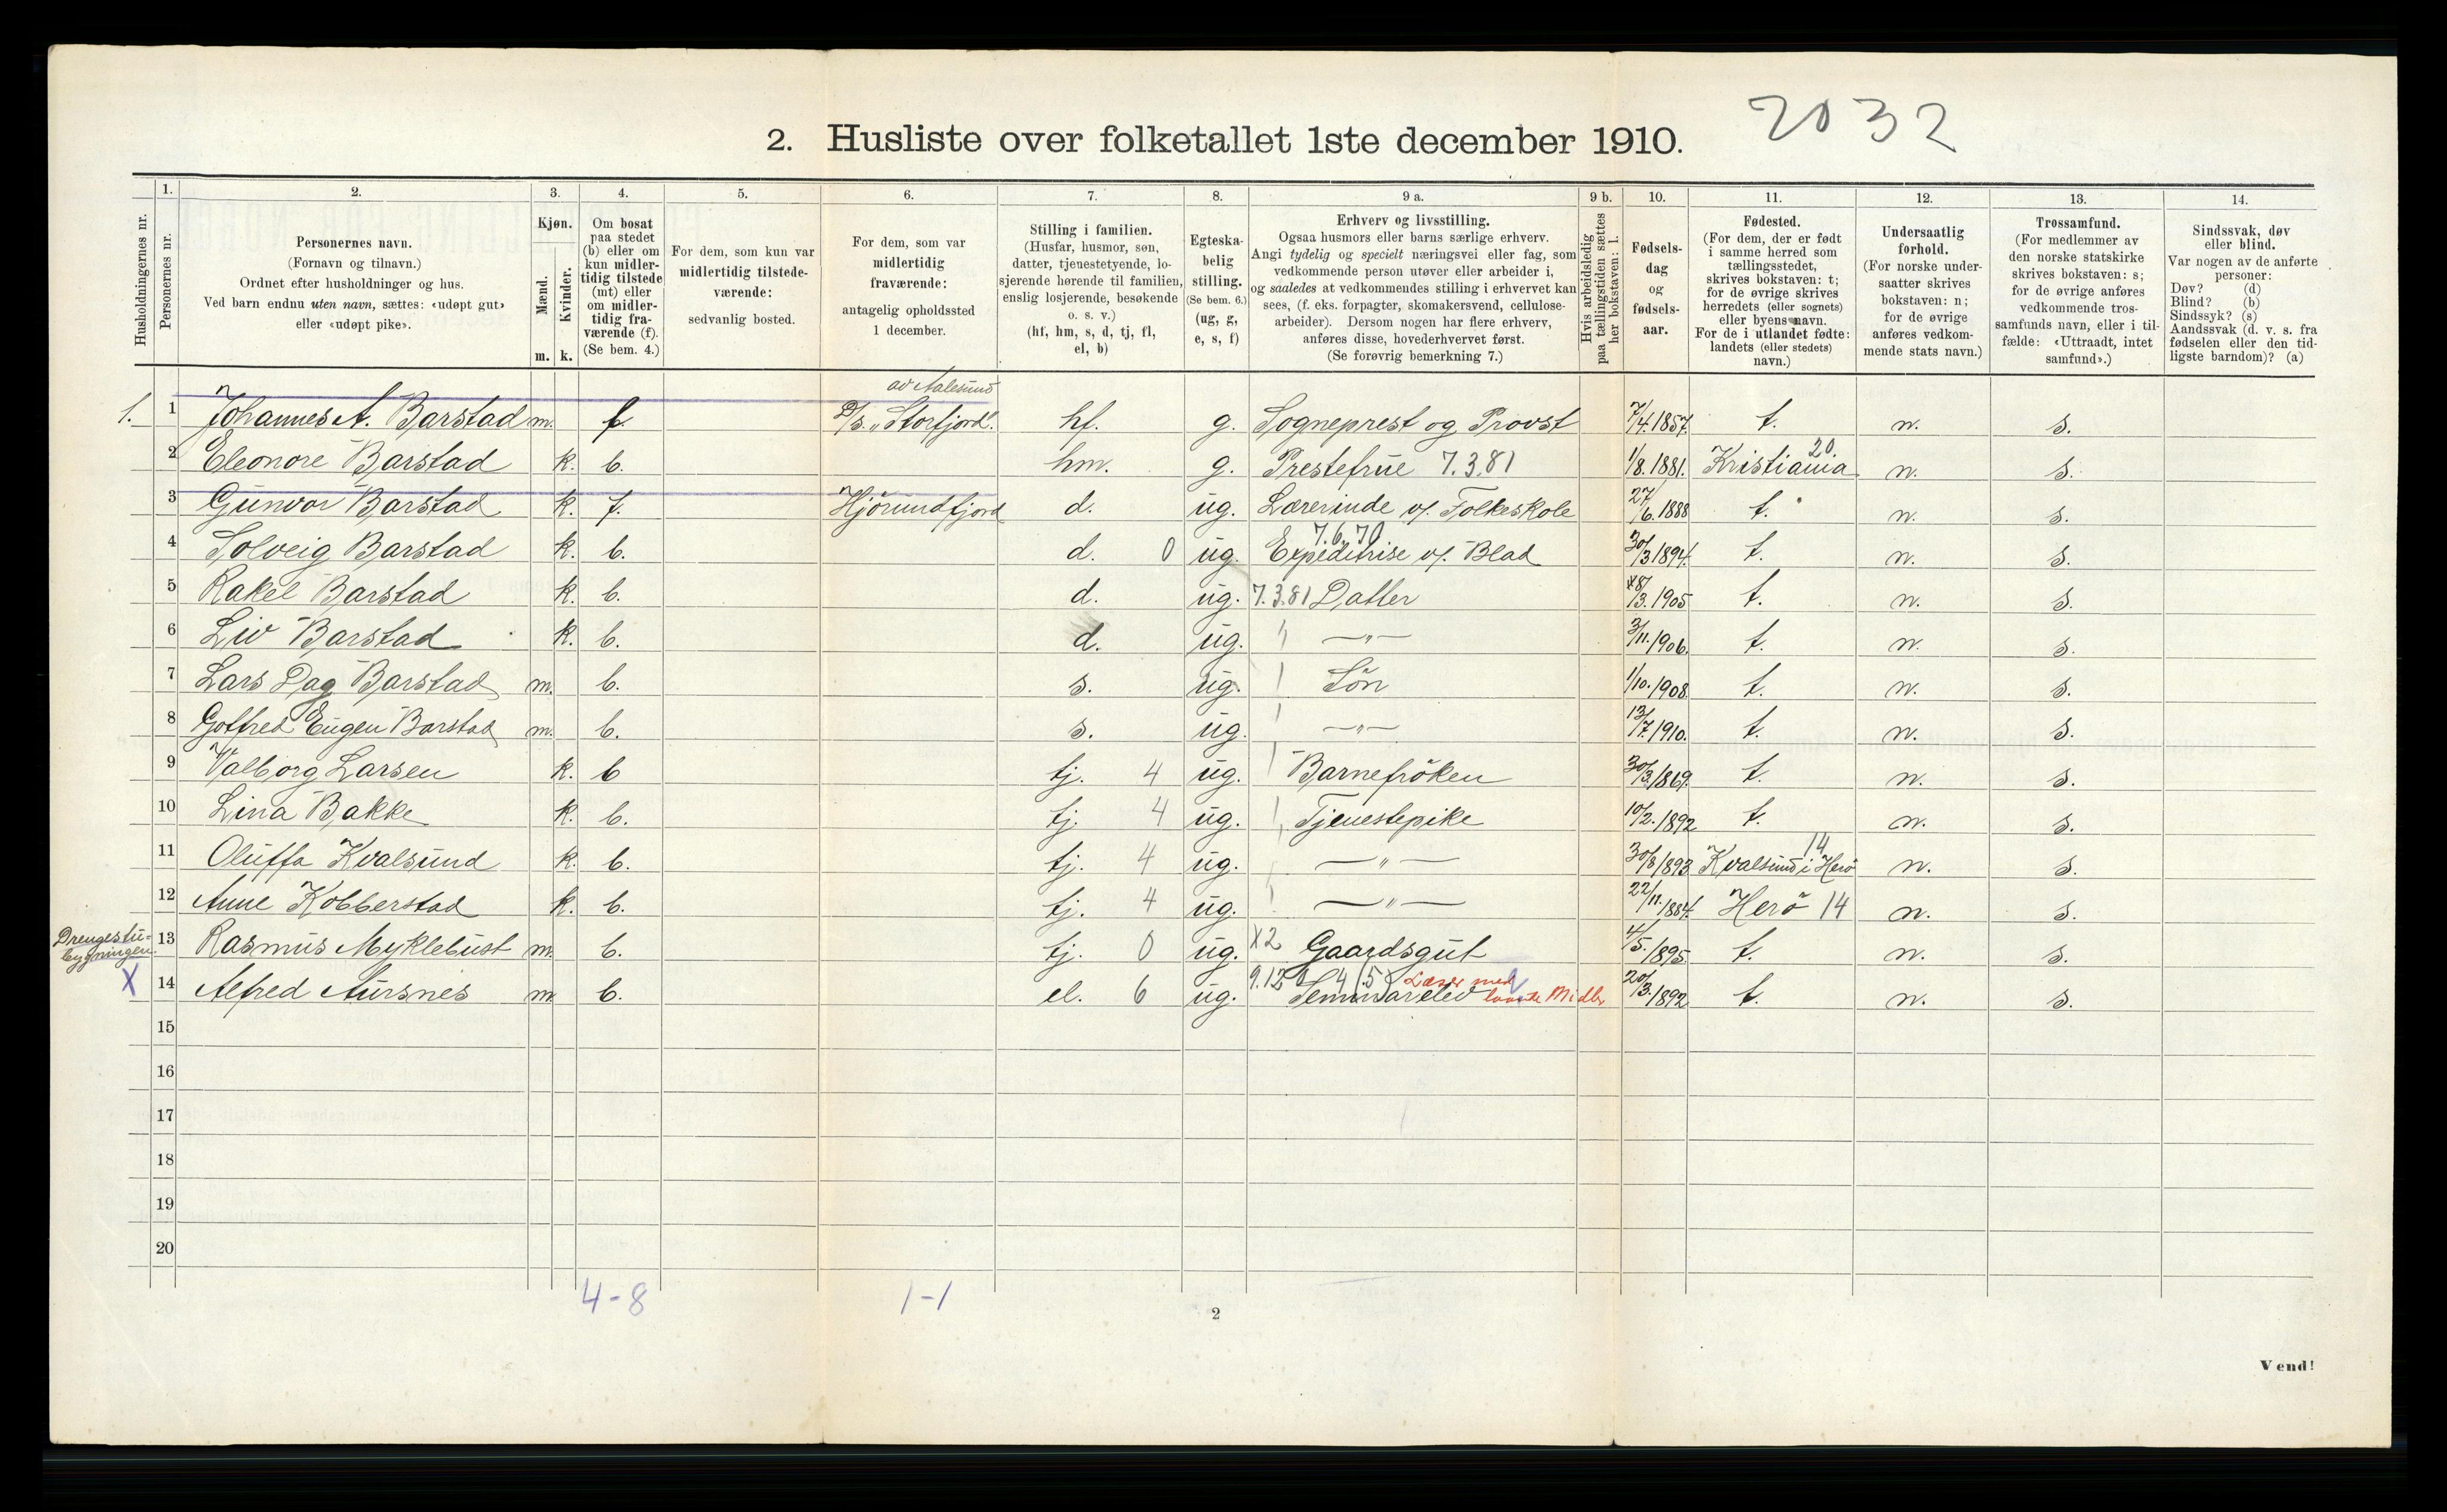 2032
2. Husliste over folketallet 1ste december 1910.
Husholdningernes nr.
1. Personernes nr.
2. Personernes navn. (Fornavn og tilnavn.) Ordnet efter husholdninger og hus. Ved barn endnu uten navn, sættes: «udøpt gut» eller «udøpt pike».
3. Kjøn. Mænd. m. Kvinder. k.
4. Om bosat paa stedet (b) eller om kun midlertidig tilstede (mt) eller om midlertidig fraværende (f). (Se bem. 4.)
5. For dem, som kun var midlertidig tilstedeværende: sedvanlig bosted.
6. For dem, som var midlertidig fraværende: antagelig opholdssted 1 december.
7. Stilling i familien. (Husfar, husmor, søn, datter, tjenestetyende, losjerende hørende til familien, enslig losjerende, besøkende o. s. v.) (hf, hm, s, d, tj, fl, el, b)
8. Egteskabelig stilling. (Se bem. 6.) (ug, g, e, s, f)
9 a. Erhverv og livsstilling. Ogsaa husmors eller barns særlige erhverv. Angi tydelig og specielt næringsvei eller fag, som vedkommende person utøver eller arbeider i, og saaledes at vedkommendes stilling i erhvervet kan sees, (f. eks. forpagter, skomakersvend, cellulosearbeider). Dersom nogen har flere erhverv, anføres disse, hovederhvervet først. (Se forøvrig bemerkning 7.)
9 b. Hvis arbeidsledig paa tællingstiden sættes her bokstaven: l.
10. Fødselsdag og fødselsaar.
11. Fødested. (For dem, der er født i samme herred som tællingsstedet, skrives bokstaven: t; for de øvrige skrives herredets (eller sognets) eller byens navn. For de i utlandet fødte: landets (eller stedets) navn.)
12. Undersaatlig forhold. (For norske undersaatter skrives bokstaven: n; for de øvrige anføres vedkommende stats navn.)
13. Trossamfund. (For medlemmer av den norske statskirke skrives bokstaven: s; for de øvrige anføres vedkommende trossamfunds navn, eller i tilfælde: «Uttraadt, intet samfund».)
14. Sindssvak, døv eller blind. Var nogen av de anførte personer: Døv? (d) Blind? (b) Sindssyk? (s) Aandssvak (d. v. s. fra fødselen eller den tidligste barndom)? (a)
1. 1 Johannes A. Barstad m. f. av Aalesund D/s. "Storfjord". hf. g. Sogneprest og Provst 7/4.1857. t. n. s.
2 Eleonore Barstad k. b. hm. g. Prestefrue 7.3.81 1/8.1881. Kristiania 20. n. s.
3 Gunvor Barstad k. f. Hjörundfjord d. ug. Lærerinde v/ Folkeskole 27/6.1888 t. n. s.
4 Solveig Barstad k. b. d. 0 ug. 7.6.70 Expeditrise v/ Blad 30/3 1894. t. n. s.
5 Rakel Barstad k. b. d. ug. 7.3.81 Datter 3.1905 t. n. s.
6 Liv Barstad k. b. d. ug. —"— 3/11.1906. t. n. s.
7 Lars Dag Barstad m. b. s. ug. Sön 1/10.1908. t. n. s.
8 Gotfred Eugen Barstad m. b. s. ug. —"— 13/7.1910. t. n. s.
9 Valborg Larsen k. b tj. 4 ug. Barnefröken 30/3.1869. t. n. s.
10 Lina Bakke k. b. tj. 4 ug. Tjenestepike 10/2.1892 t. n. s.
11 Oluffa Kvalsund k. b. tj. 4 ug. —"— 30/8 1893 Kvalsund i Herö 14 n. s.
12 Anne Kobberstad k. b. tj. 4 ug. —"— 22/11.1884. Herö 14 n. s.
Drengestubygningen. 13 Rasmus Myklebust m. b. tj. 0 ug. X2 Gaardsgut 4/5.1895. t. n. s.
X 14 Alfred Aursnes m b. el. 6 ug. 9.12 Seminarelev Læser med laante Midler 20/3.1892 t. n. s.
15
16
17
18
19
20
4-8 1-1
2
Vend!